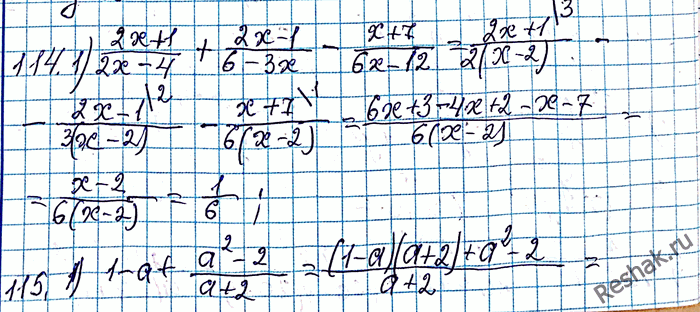 114. 1) (2x+1)/(2x-4) + (2x-1)/(6-3x) - (x+7)/(6x-12) = (2x+1)/(2(x-2)) \3 -
- (2x-1)/(3(x-2)) \2 - (x+7)/(6(x-2)) \1 = (6x+3-4x+2-x-7)/(6(x-2)) =
= (x-2)/(6(x-2)) = 1/6 ;
115. 1) 1-a+ (a²-2)/(a+2) = ((1-a)(a+2)+a²-2)/(a+2) =
Reshak.ru